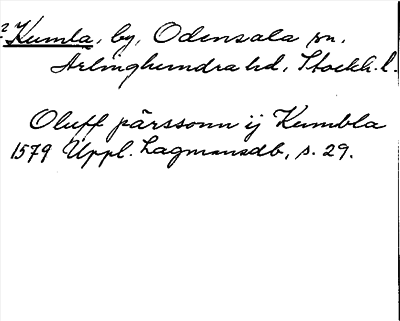 2 Kumla, by, Odensala sn,
Ärlinghundra hd, Stockh. l.
Oluff pärssonn ij Kumbla
1579 Uppl. Lagmansdb, s. 29.